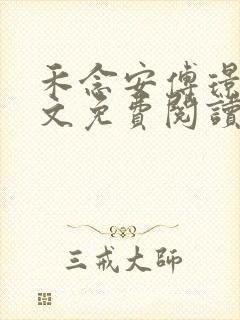 禾念安傅璟
文免費閱讀
三戒大師